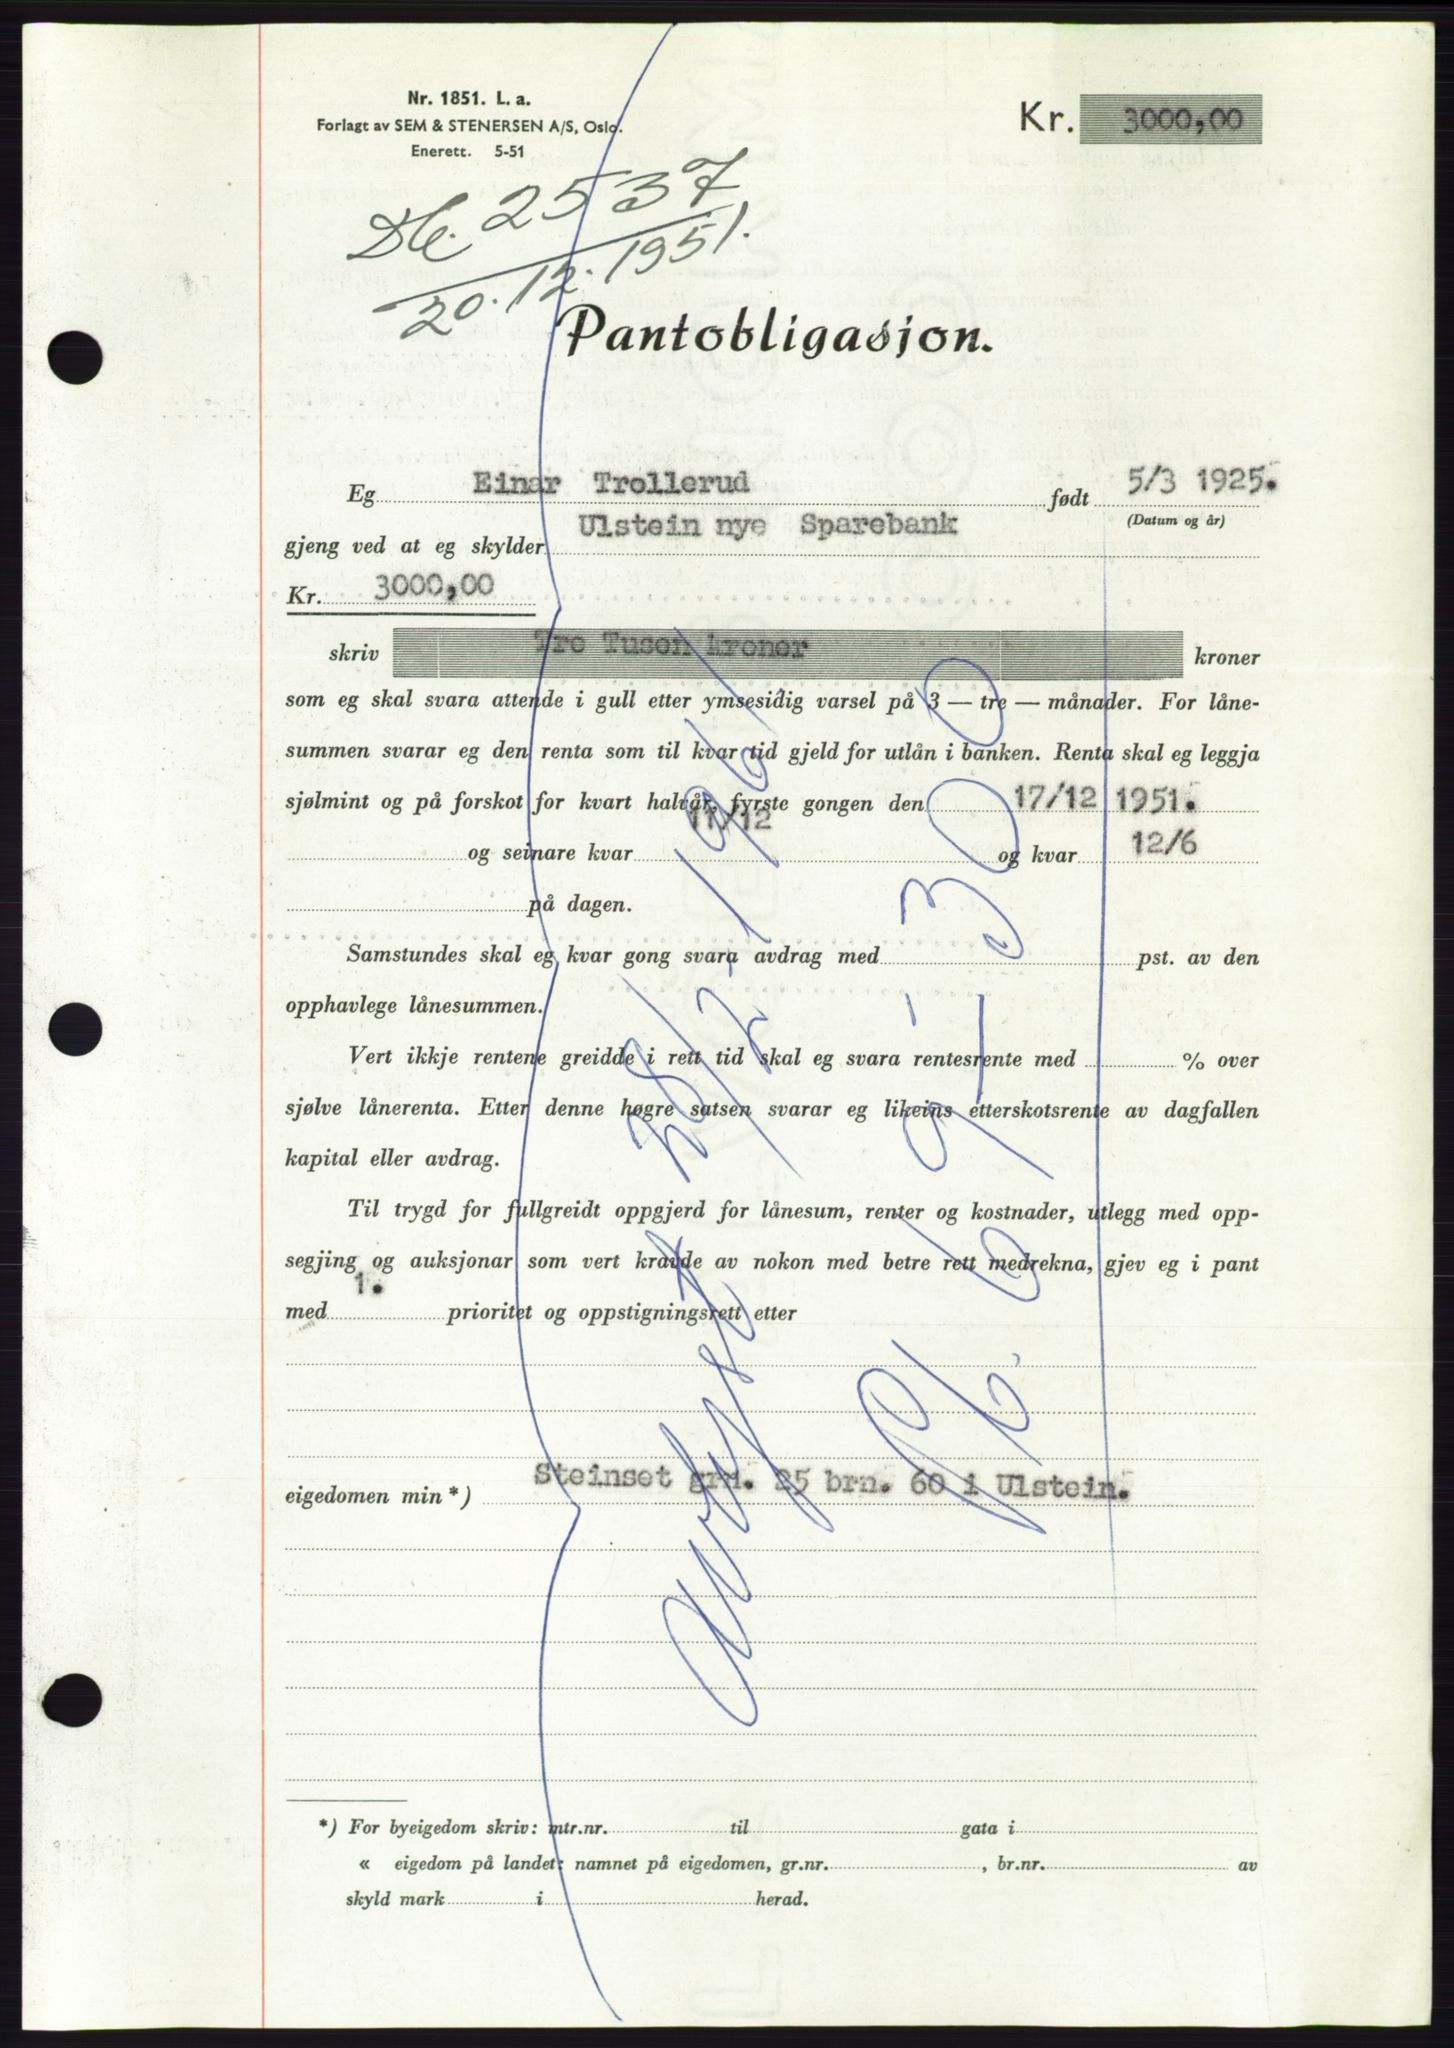 Nr. 1851. L. a.
Forlagt av SEM & STENERSEN A/S, Oslo.
Enerett. 5-51
Kr. 3000,00
2537
20.12.1951.
Pantobligasjon.
Eg Einar Trollerud født 5/3 1925.
(Datum og år)
gjeng ved at eg skylder Ulstein nye Sparebank
Kr. 3000,00
skriv Tre Tusen kroner kroner
som eg skal svara attende i gull etter ymsesidig varsel på 3 — tre — månader. For låne-
summen svarar eg den renta som til kvar tid gjeld for utlån i banken. Renta skal eg leggja
sjølmint og på forskot for kvart halvår, fyrste gongen den 17/12 1951.
og seinare kvar 11/12 og kvar 12/6
på dagen.
Samstundes skal eg kvar gong svara avdrag med pst. av den
opphavlege lånesummen.
Vert ikkje rentene greidde i rett tid skal eg svara rentesrente med % over
sjølve lånerenta. Etter denne høgre satsen svarar eg likeins etterskotsrente av dagfallen
kapital eller avdrag.
Til trygd for fullgreidt oppgjerd for lånesum, renter og kostnader, utlegg med opp-
segjing og auksjonar som vert kravde av nokon med betre rett medrekna, gjev eg i pant
med 1. prioritet og oppstigningsrett etter
eigedomen min *) Steinset grn. 25 brn. 60 i Ulstein.
avlyst 28/2-1961
*) For byeigedom skriv: mtr.nr. til gata i
« eigedom på landet: namnet på eigedomen, gr.nr. , br.nr. av
skyld mark i herad.